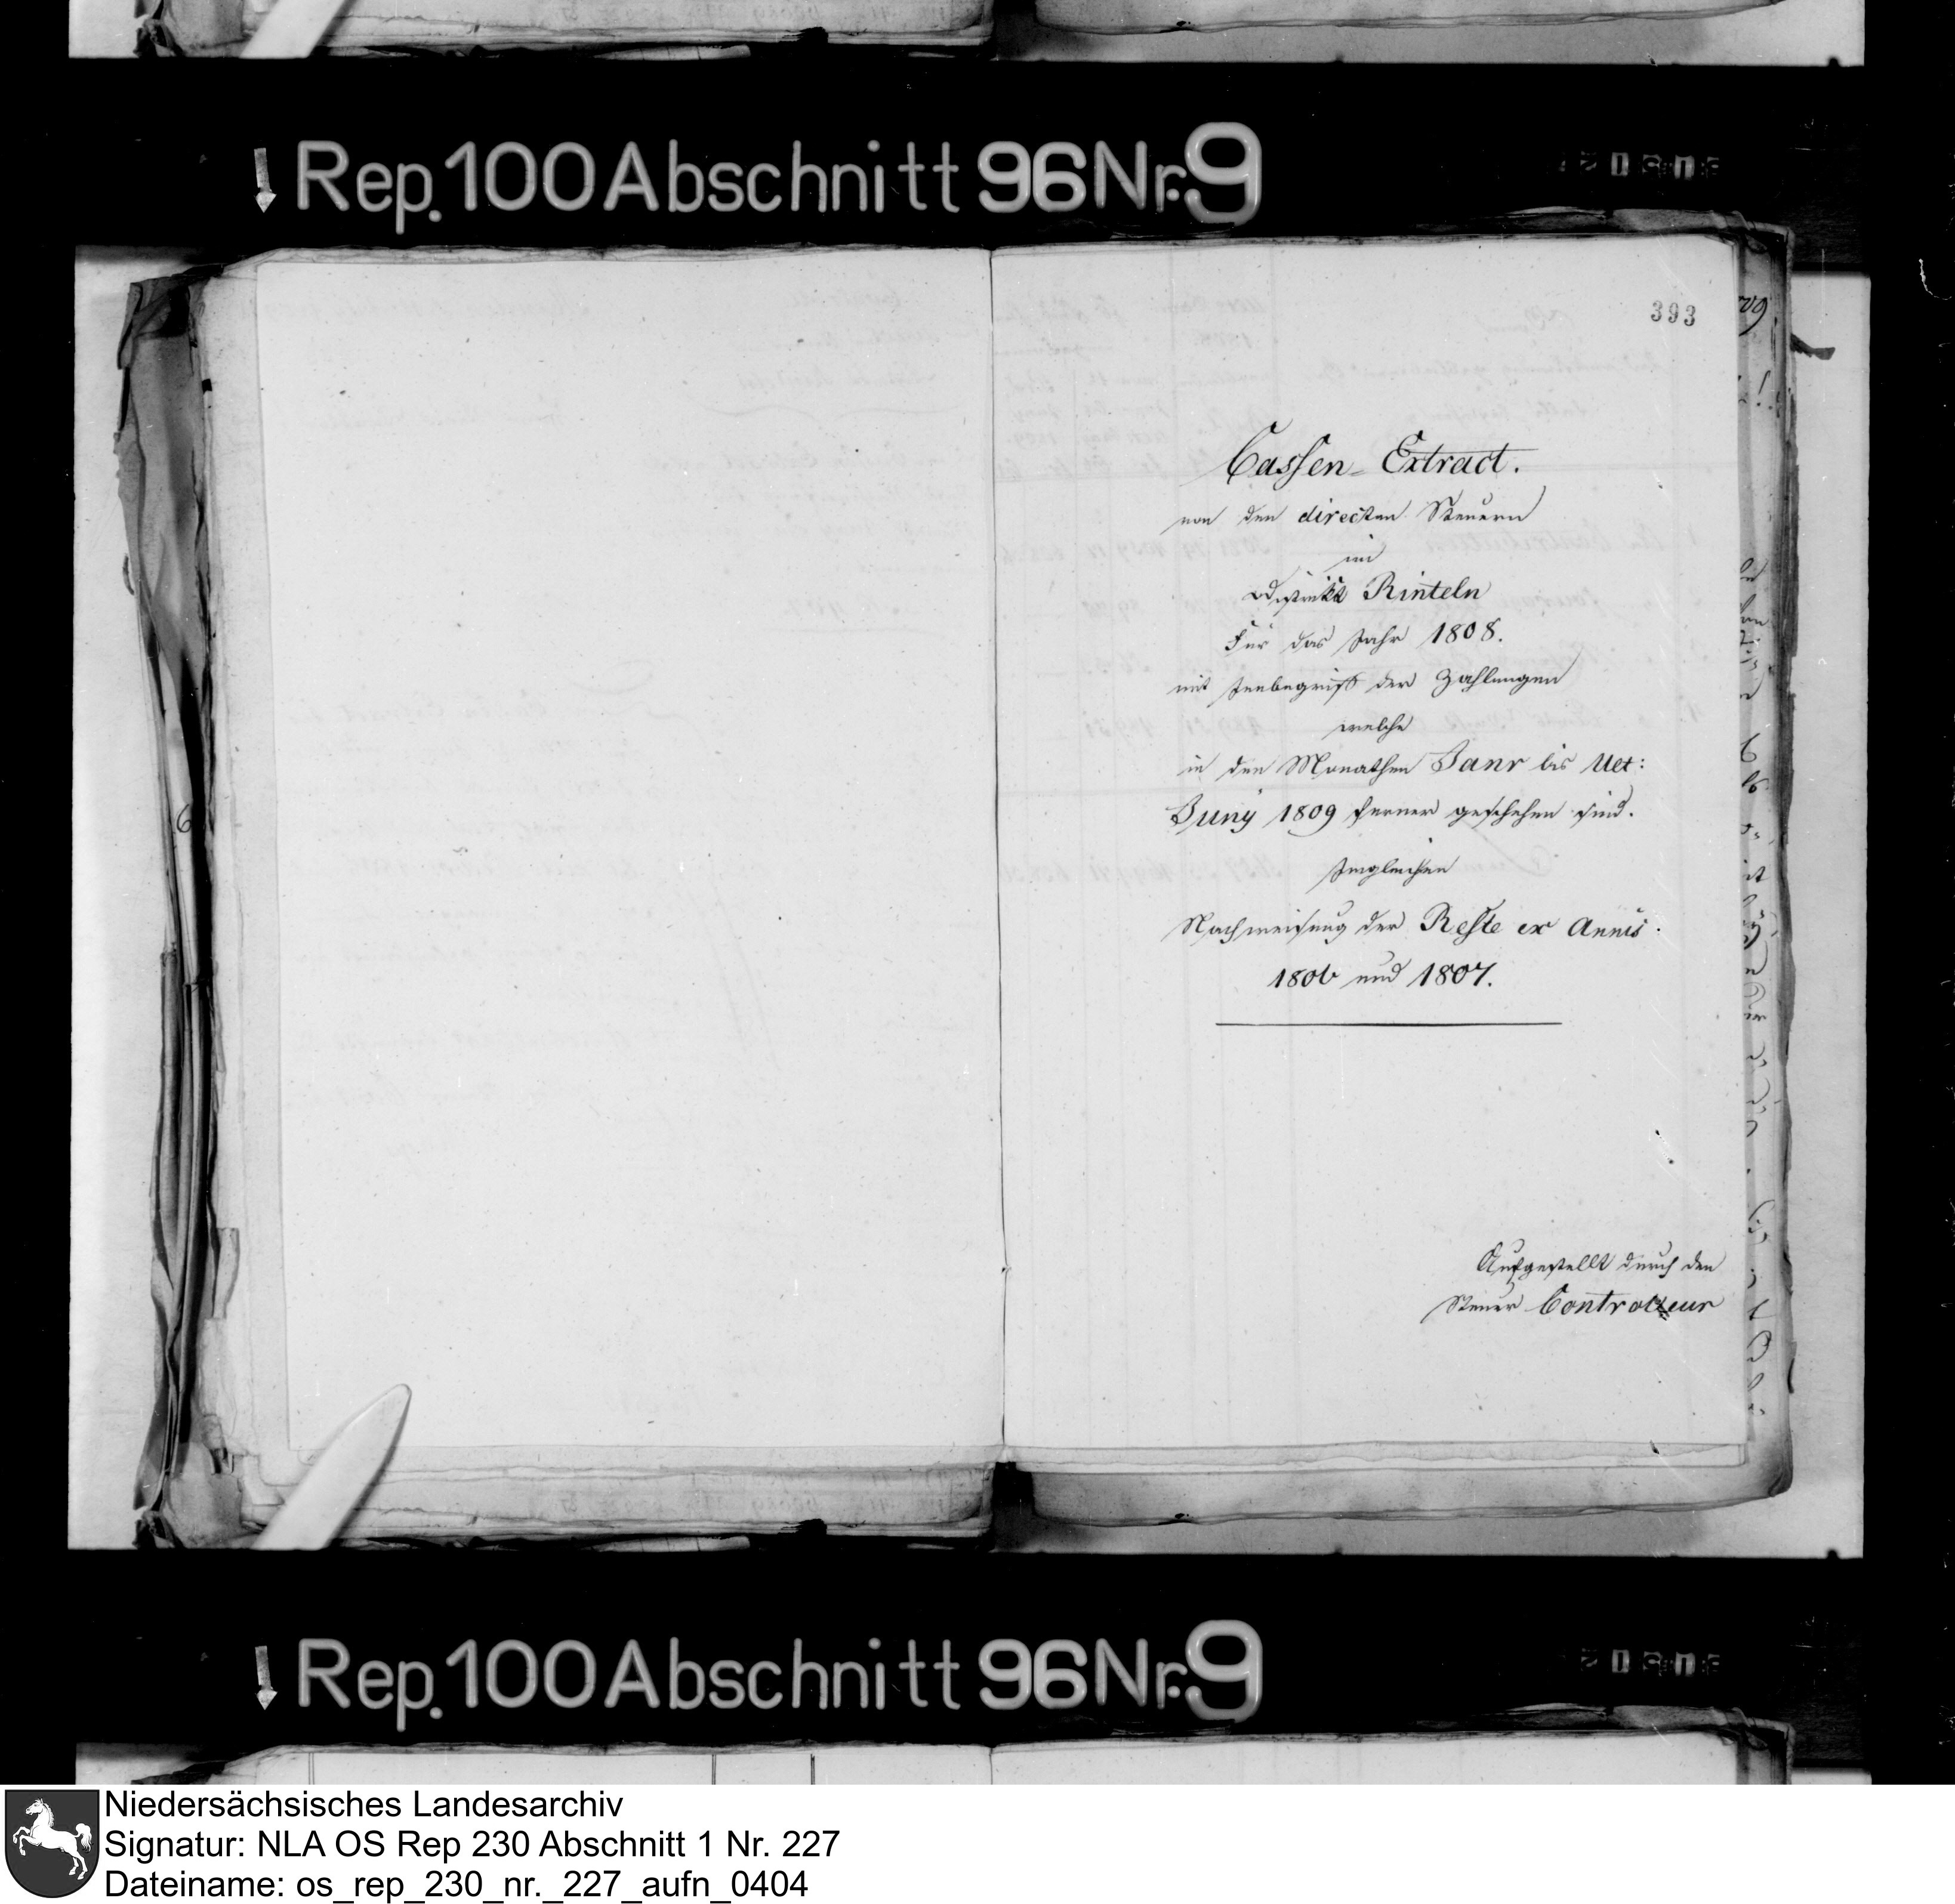 Rep. 100 Abschnitt 96 Nr. 9
393
Cassen-Extract.
von den directen Steuern
im
District Rinteln
Für das Jahr 1808.
mit Innbegriff der Zahlungen
welche
in den Monathen Janr bis Ult:
Juny 1809 ferner geschehen sind.
Imgleichen
Nachweisung der Reste ex Annis
1806 und 1807.
Aufgestellt durch den
Steuer Controlleur
Rep. 100 Abschnitt 96 Nr. 9
Niedersächsisches Landesarchiv
Signatur: NLA OS Rep 230 Abschnitt 1 Nr. 227
Dateiname: os_rep_230_nr._227_aufn_0404